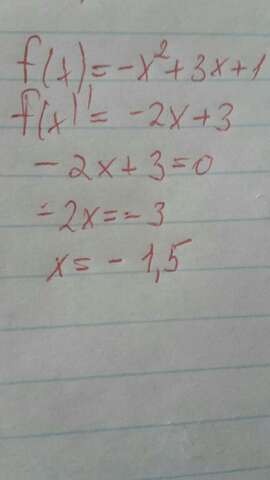 f(x) = -x² + 3x + 1
f(x)' = -2x + 3
-2x + 3 = 0
-2x = -3
x = -1,5